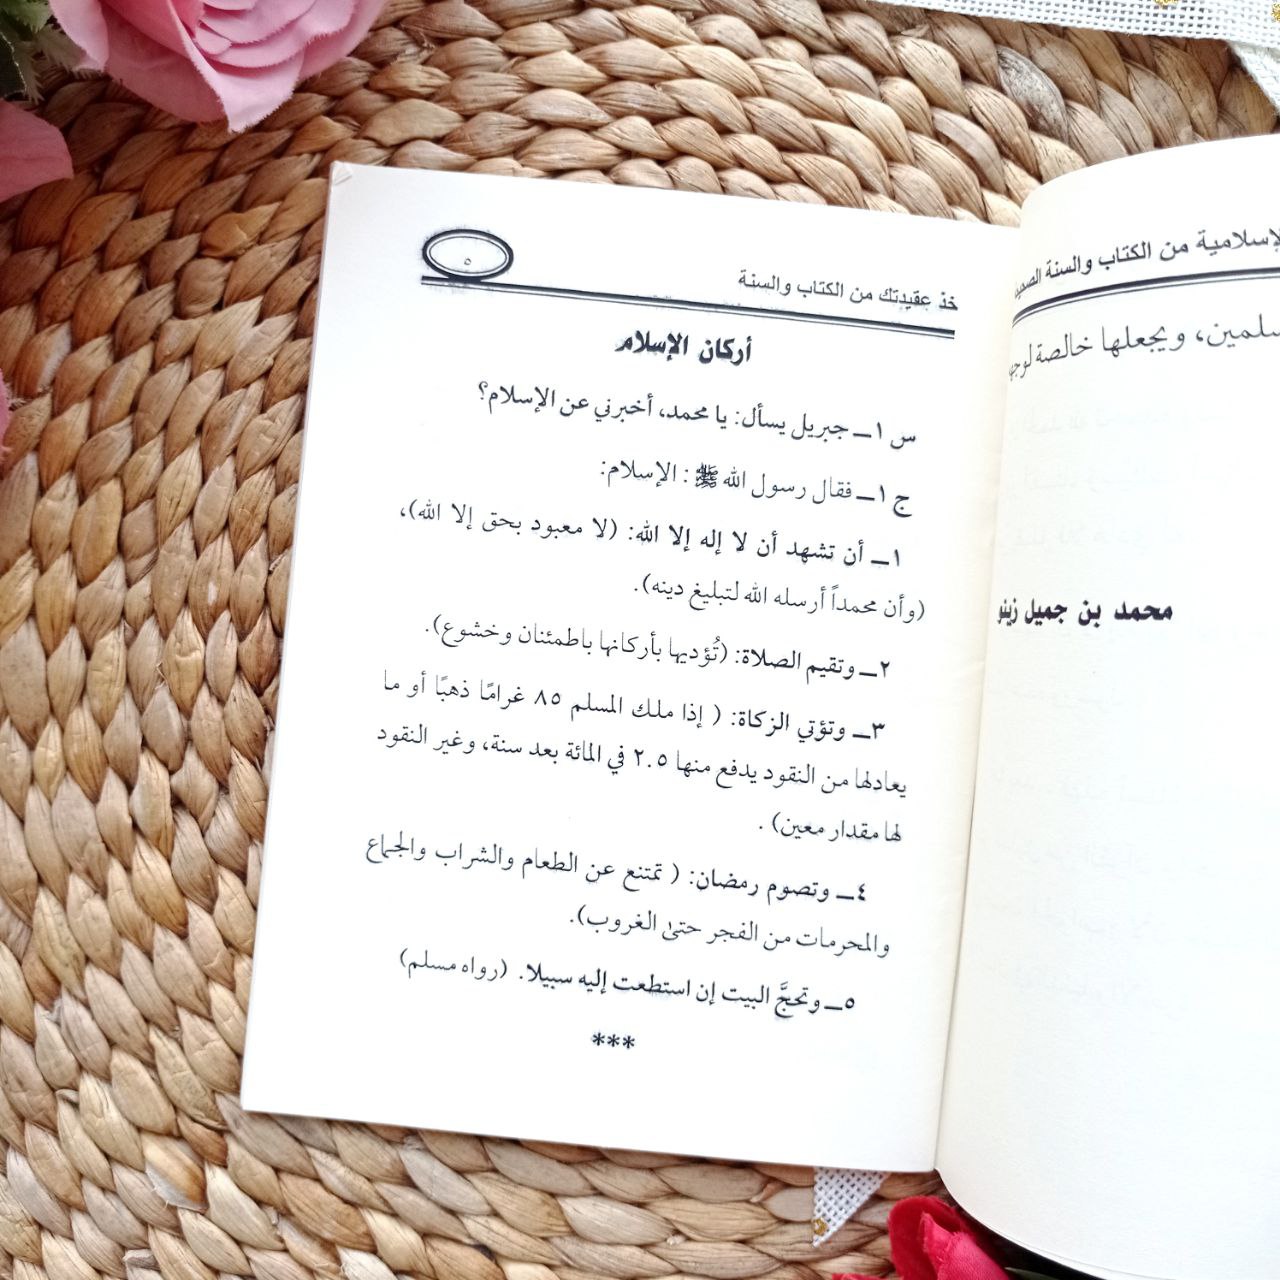 لإسلامية من الكتاب والسنة
سلمين، ويجعلها خالصة
محمد بن جميل زينو
خذ عقيدتك من الكتاب والسنة
٥
أركان الإسلام
س ١ــ جبريل يسأل: يا محمد، أخبرني عن الإسلام؟
ج ١ــ فقال رسول الله ﷺ : الإسلام:
١ــ أن تشهد أن لا إله إلا الله: (لا معبود بحق إلا الله)،
(وأن محمداً أرسله الله لتبليغ دينه).
٢ــ وتقيم الصلاة: (تُؤديها بأركانها باطمئنان وخشوع).
٣ــ وتؤتي الزكاة: ( إذا ملك المسلم ٨٥ غرامًا ذهبًا أو ما
يعادلها من النقود يدفع منها ٢.٥ في المائة بعد سنة، وغير النقود
لها مقدار معين) .
٤ــ وتصوم رمضان: ( تمتنع عن الطعام والشراب والجماع
والمحرمات من الفجر حتىٰ الغروب).
٥ــ وتحجَّ البيت إن استطعت إليه سبيلا. (رواه مسلم)
***